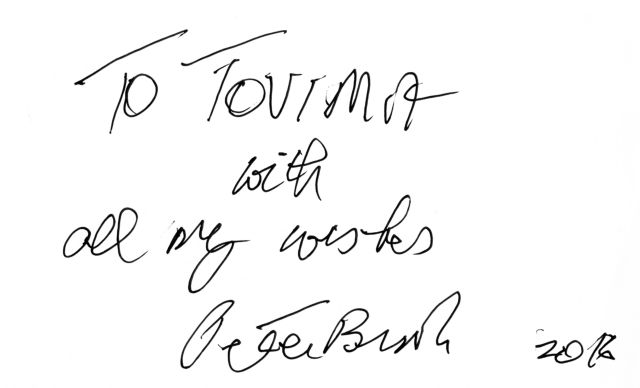 TO TOVIMA
with
all my wishes
Peter Brook 2016